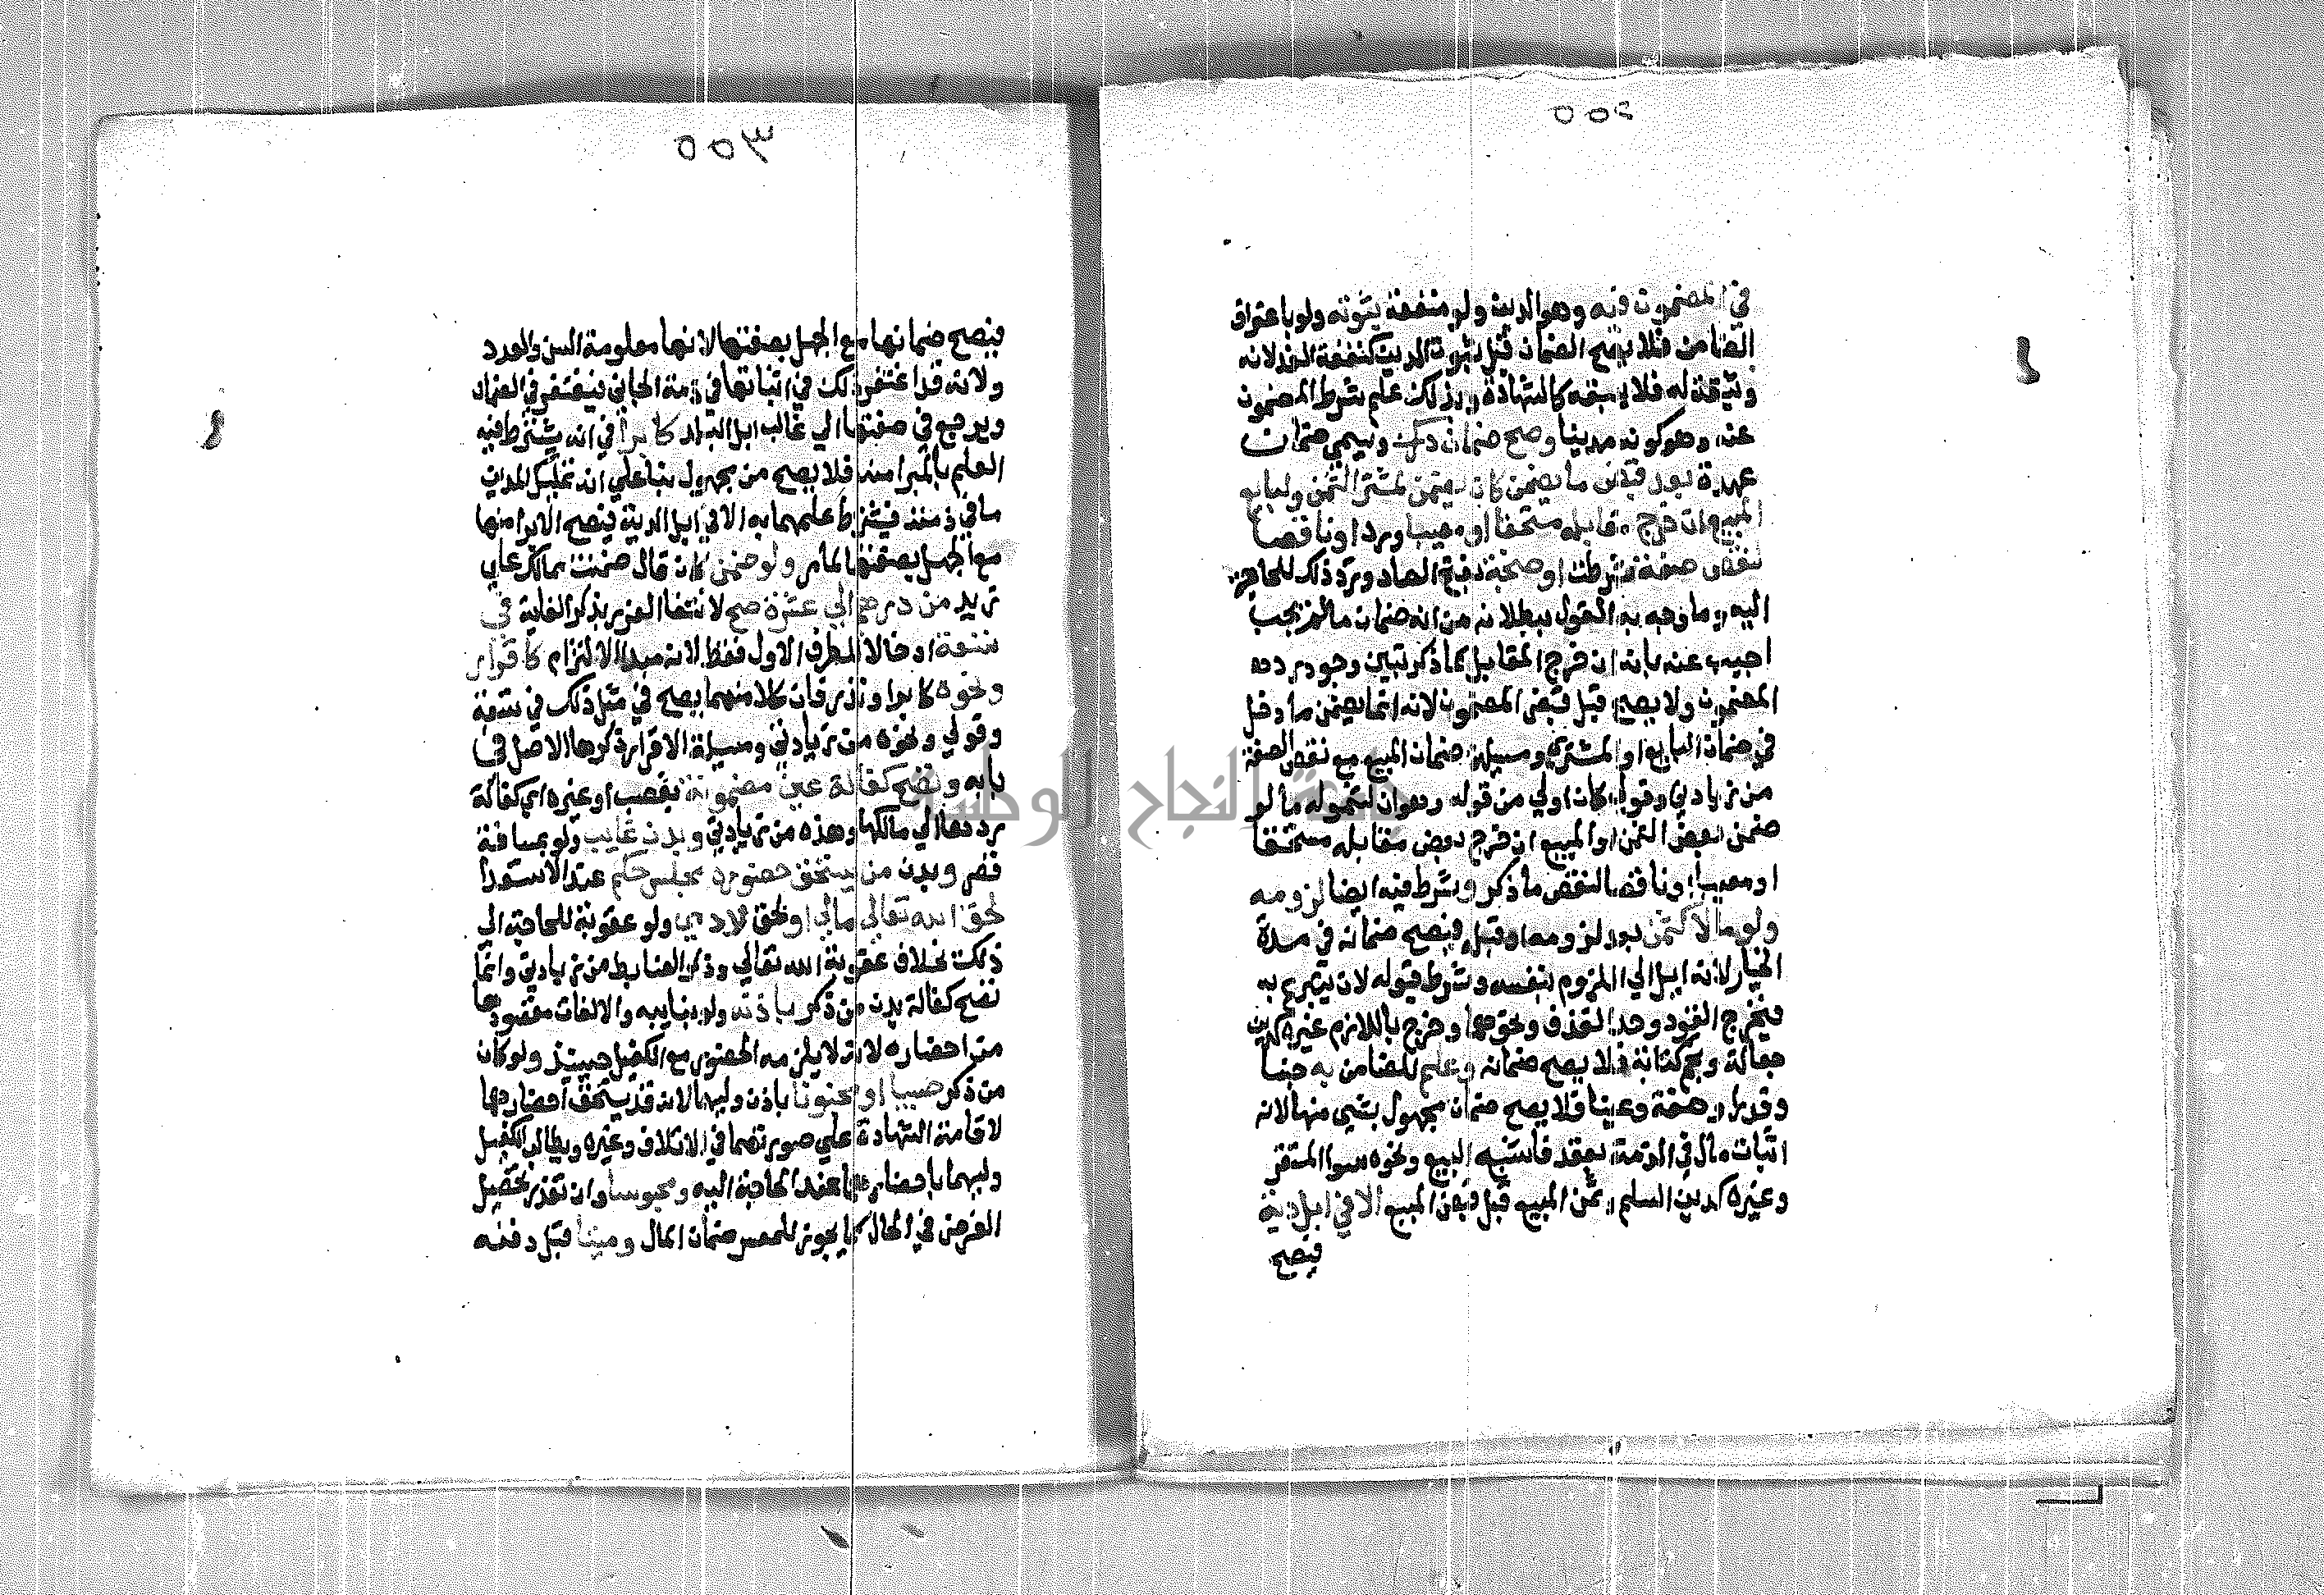 ٥٥٢
في المضمون فيه وهو الدين ولو منفعة ثبوته ولو باعتراف
الضامن فلا يصح الضمان قبل ثبوت الدين كنفقة الغد لانه
وثيقة له فلا يسبقه كالشهادة وبذلك علم شرط المضمون
عنه وهو كونه مدينا وصح ضمان درك ويسمى ضمان
عهدة بعد قبض ما يضمن كان يضمن لمشتر الثمن ولبايع
المبيع ان خرج مقابله مستحقا او معيبا ورد او ناقصا
لنقص صفة شرطت او صنجة بفتح الصاد ويرد ذلك للحاجة
اليه وما وجه به القول ببطلانه من انه ضمان ما لم يجب
اجيب عنه بانه ان خرج المقابل كما ذكر تبين وجوب رده
المضمون ولا يصح قبل قبض المضمون لانه انما يضمن ما دخل
في ضمان البايع او المشتري ومسيلة ضمان المبيع مع نقص الصفة
من زيادتي وقولي كان اولي من قوله وهو ان لشموله ما لو
ضمن بعض الثمن او المبيع ان خرج بعض مقابله مستحقا
او معيبا او ناقصا لنقص ما ذكر وشرط فيه ايضا لزومه
ولو مالا كثمن بعد لزومه او قبله فيصح ضمانه في مدة
الخيار لانه ايل الي اللزوم بنفسه وشرط قبوله لان يتبرع به
فيخرج القود وحد القذف ونحوهما وخرج باللازم غيره كدين
جعالة ونجم كتابة فلا يصح ضمانه وعلم للضامن به جنسا
وقدرا وصفة وعينا فلا يصح ضمان مجهول بشي منها لانه
اثبات مال في الذمة بعقد فاشبه البيع ونحوه سوا المستقر
وغيره كدين السلم وثمن المبيع قبل قبض المبيع الا في ابل دية
فيصح
٥٥٣
فيصح ضمانها مع الجهل بصفتها لانها معلومة السن والعدد
ولانه قد اغتفر ذلك في اثباتها في ذمة الجاني فيغتفر في الضمان
ويرجع في صفتها الي غالب ابل البلد كابرا في انه يشترط فيه
العلم بالمبرا منه فلا يصح من مجهول بنا علي انه تمليك المدين
ما في ذمته فيشترط علمهما به الا في ابل الدية فيصح الابرا منها
مع الجهل بصفتها لما مر ولو ضمن كان قال ضمنت مما لك علي
زيد من درهم الي عشرة صح لانتفا الغرر بذكر الغاية في
تسعة ادخالا للطرف الاول فقط لانه مبدا الالتزام كاقرار
ونحوه كابرا ونذر فان كلا منهما يصح في مثل ذلك في تسعة
وقولي ونحوه من زيادتي ومسيلة الاقرار ذكرها الاصل في
بابه وتصح كفالة عين مضمونة بغصب او غيره اي كفالة
ردها الي مالكها وهذه من زيادتي وبدن غايب ولو بمسافة
قصر وبدن من يستحق حضوره مجلس حكم عند الاستعدا
لحق الله تعالي مالي او لحق لادمي ولو عقوبة للحاجة الي
ذلك بخلاف عقوبة الله تعالي وذكر الضابط من زيادتي وانما
تصح كفالة بدن من ذكر باذنه ولو بنايبه والا لفات مقصودها
من احضاره لانه لا يلزمه الحضور مع الكفيل حينيذ ولو كان
من ذكر صبيا او مجنونا باذن وليهما لانه قد يستحق احضارهما
لاقامة الشهادة علي صورتهما في الاتلاف وغيره ويطالب الكفيل
وليهما باحضارهما عند الحاجة اليه ومحبوسا وان تعذر تحصيل
الغرض في الحال كما يجوز للمعسر ضمان المال وميتا قبل دفنه
جامعة النجاح الوطنية